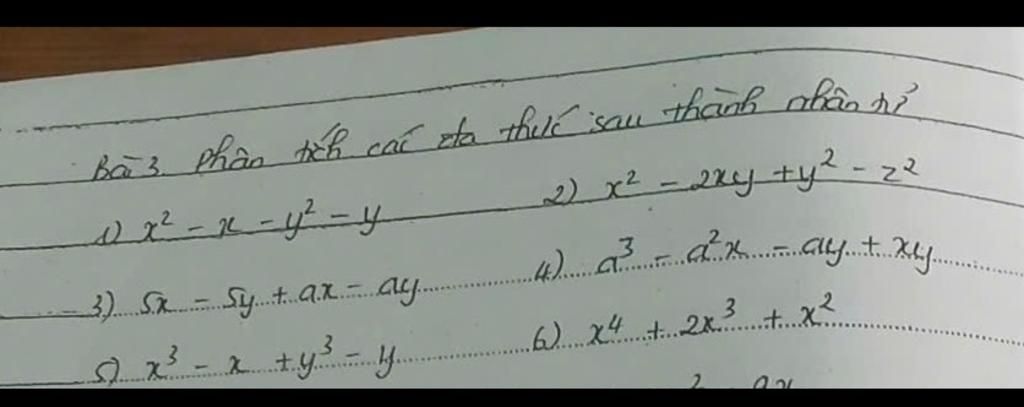 Bài 3. Phân tích các đa thức sau thành nhân tử
1) x² - x - y² - y 2) x² - 2xy + y² - z²
3) 5x - 5y + ax - ay 4) a³ - a²x - ay + xy
5) x³ - x + y³ - y 6) x⁴ + 2x³ + x²